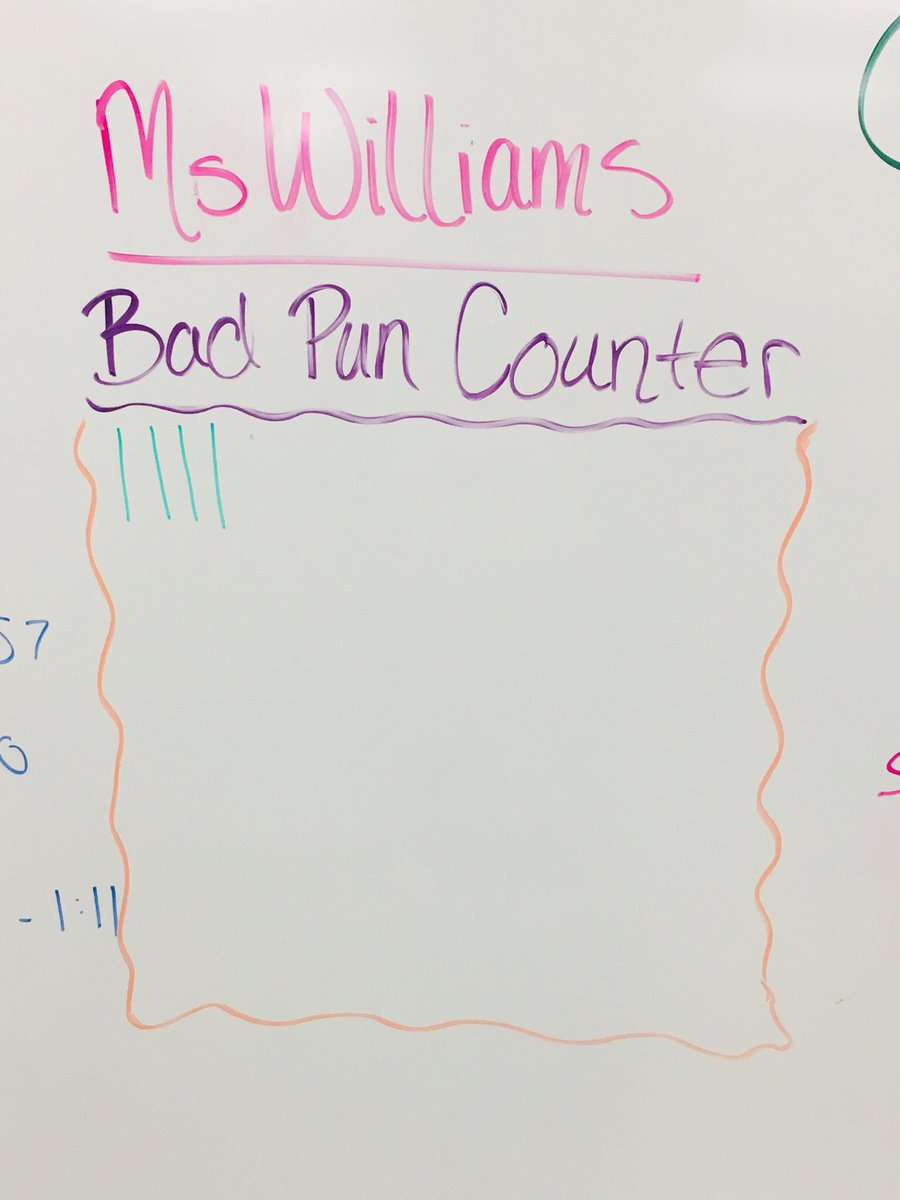 Ms Williams
Bad Pun Counter
||||
57
0
- 1:11